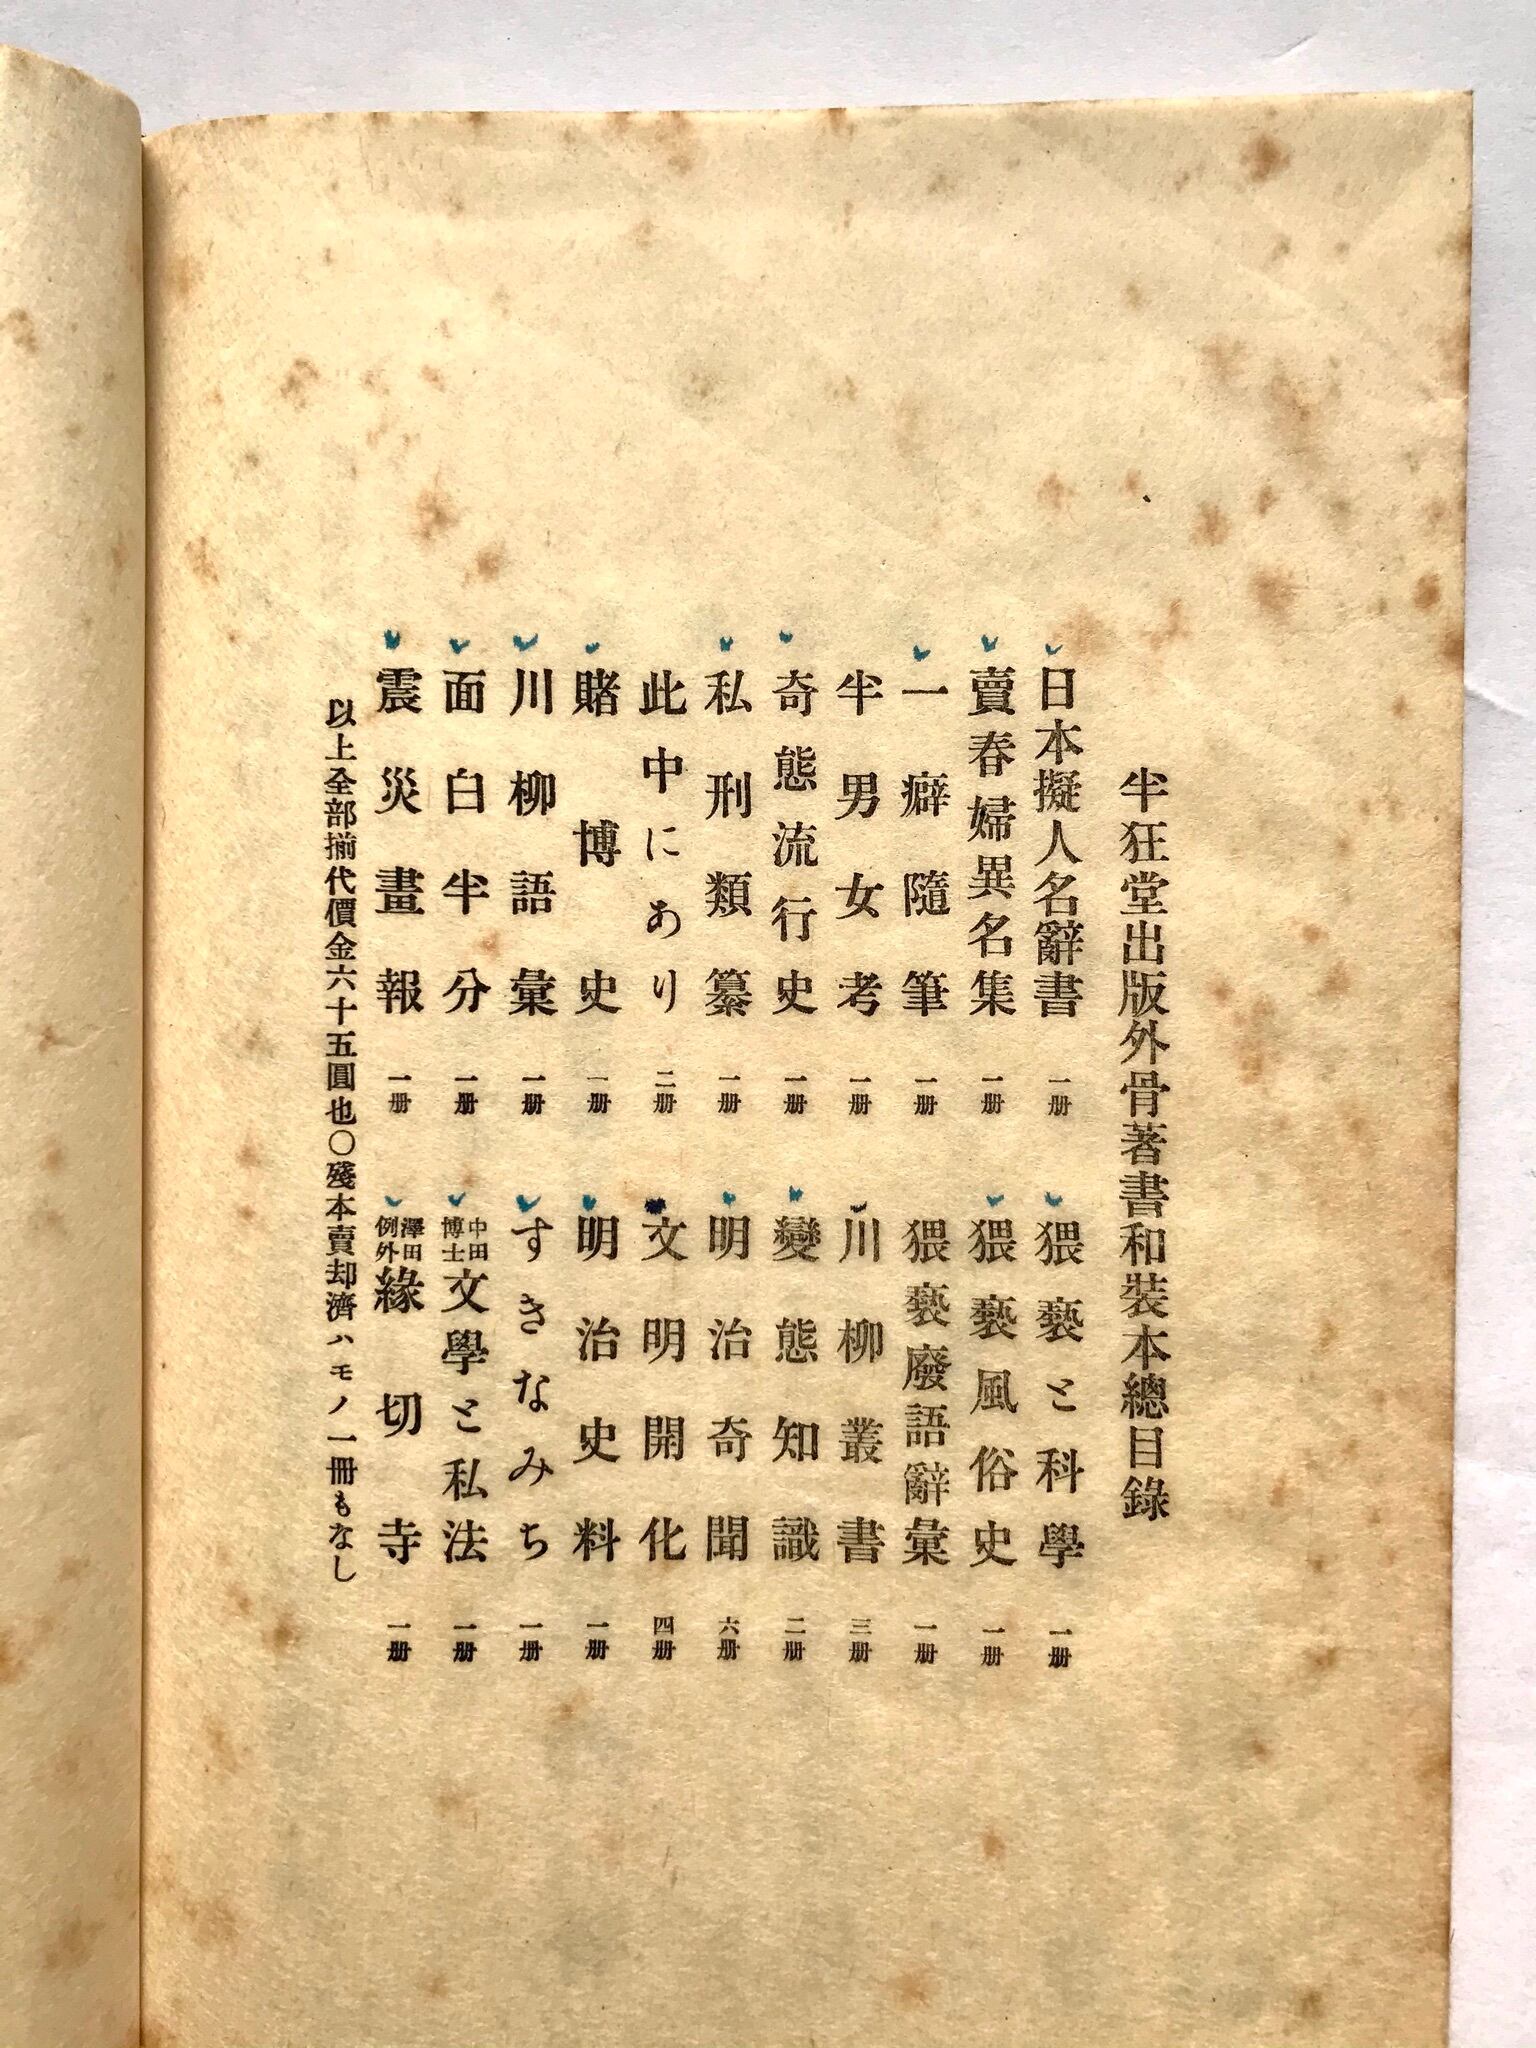 半狂堂出版外骨著書和裝本總目錄
日本擬人名辭書 一册
賣春婦異名集 一册
一癖隨筆 一册
半男女考 一册
奇態流行史 一册
私刑類纂 一册
此中にあり 二册
賭博史 一册
川柳語彙 一册
面白半分 一册
震災畫報 一册
猥褻と科學 一册
猥褻風俗史 一册
猥褻廢語辭彙 一册
川柳叢書 三册
變態知識 二册
明治奇聞 六册
文明開化 四册
明治史料 一册
すきなみち 一册
中田博士文學と私法 一册
澤田例外緣切寺 一册
以上全部揃代價金六十五圓也〇殘本賣却濟ハモノ一冊もなし